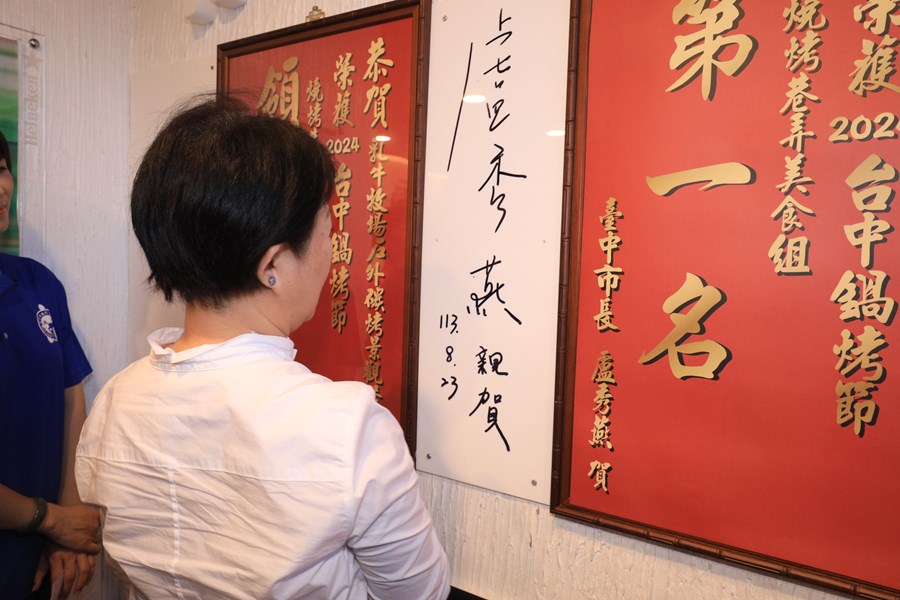 Heineken
恭賀 乳牛牧場戶外碳烤景觀
榮獲 2024 台中鍋烤節
燒烤
領
盧秀燕 親賀
113.8.23
榮獲 202 台中鍋烤節
燒烤巷弄美食組
第一名
臺中市長 盧秀燕 賀